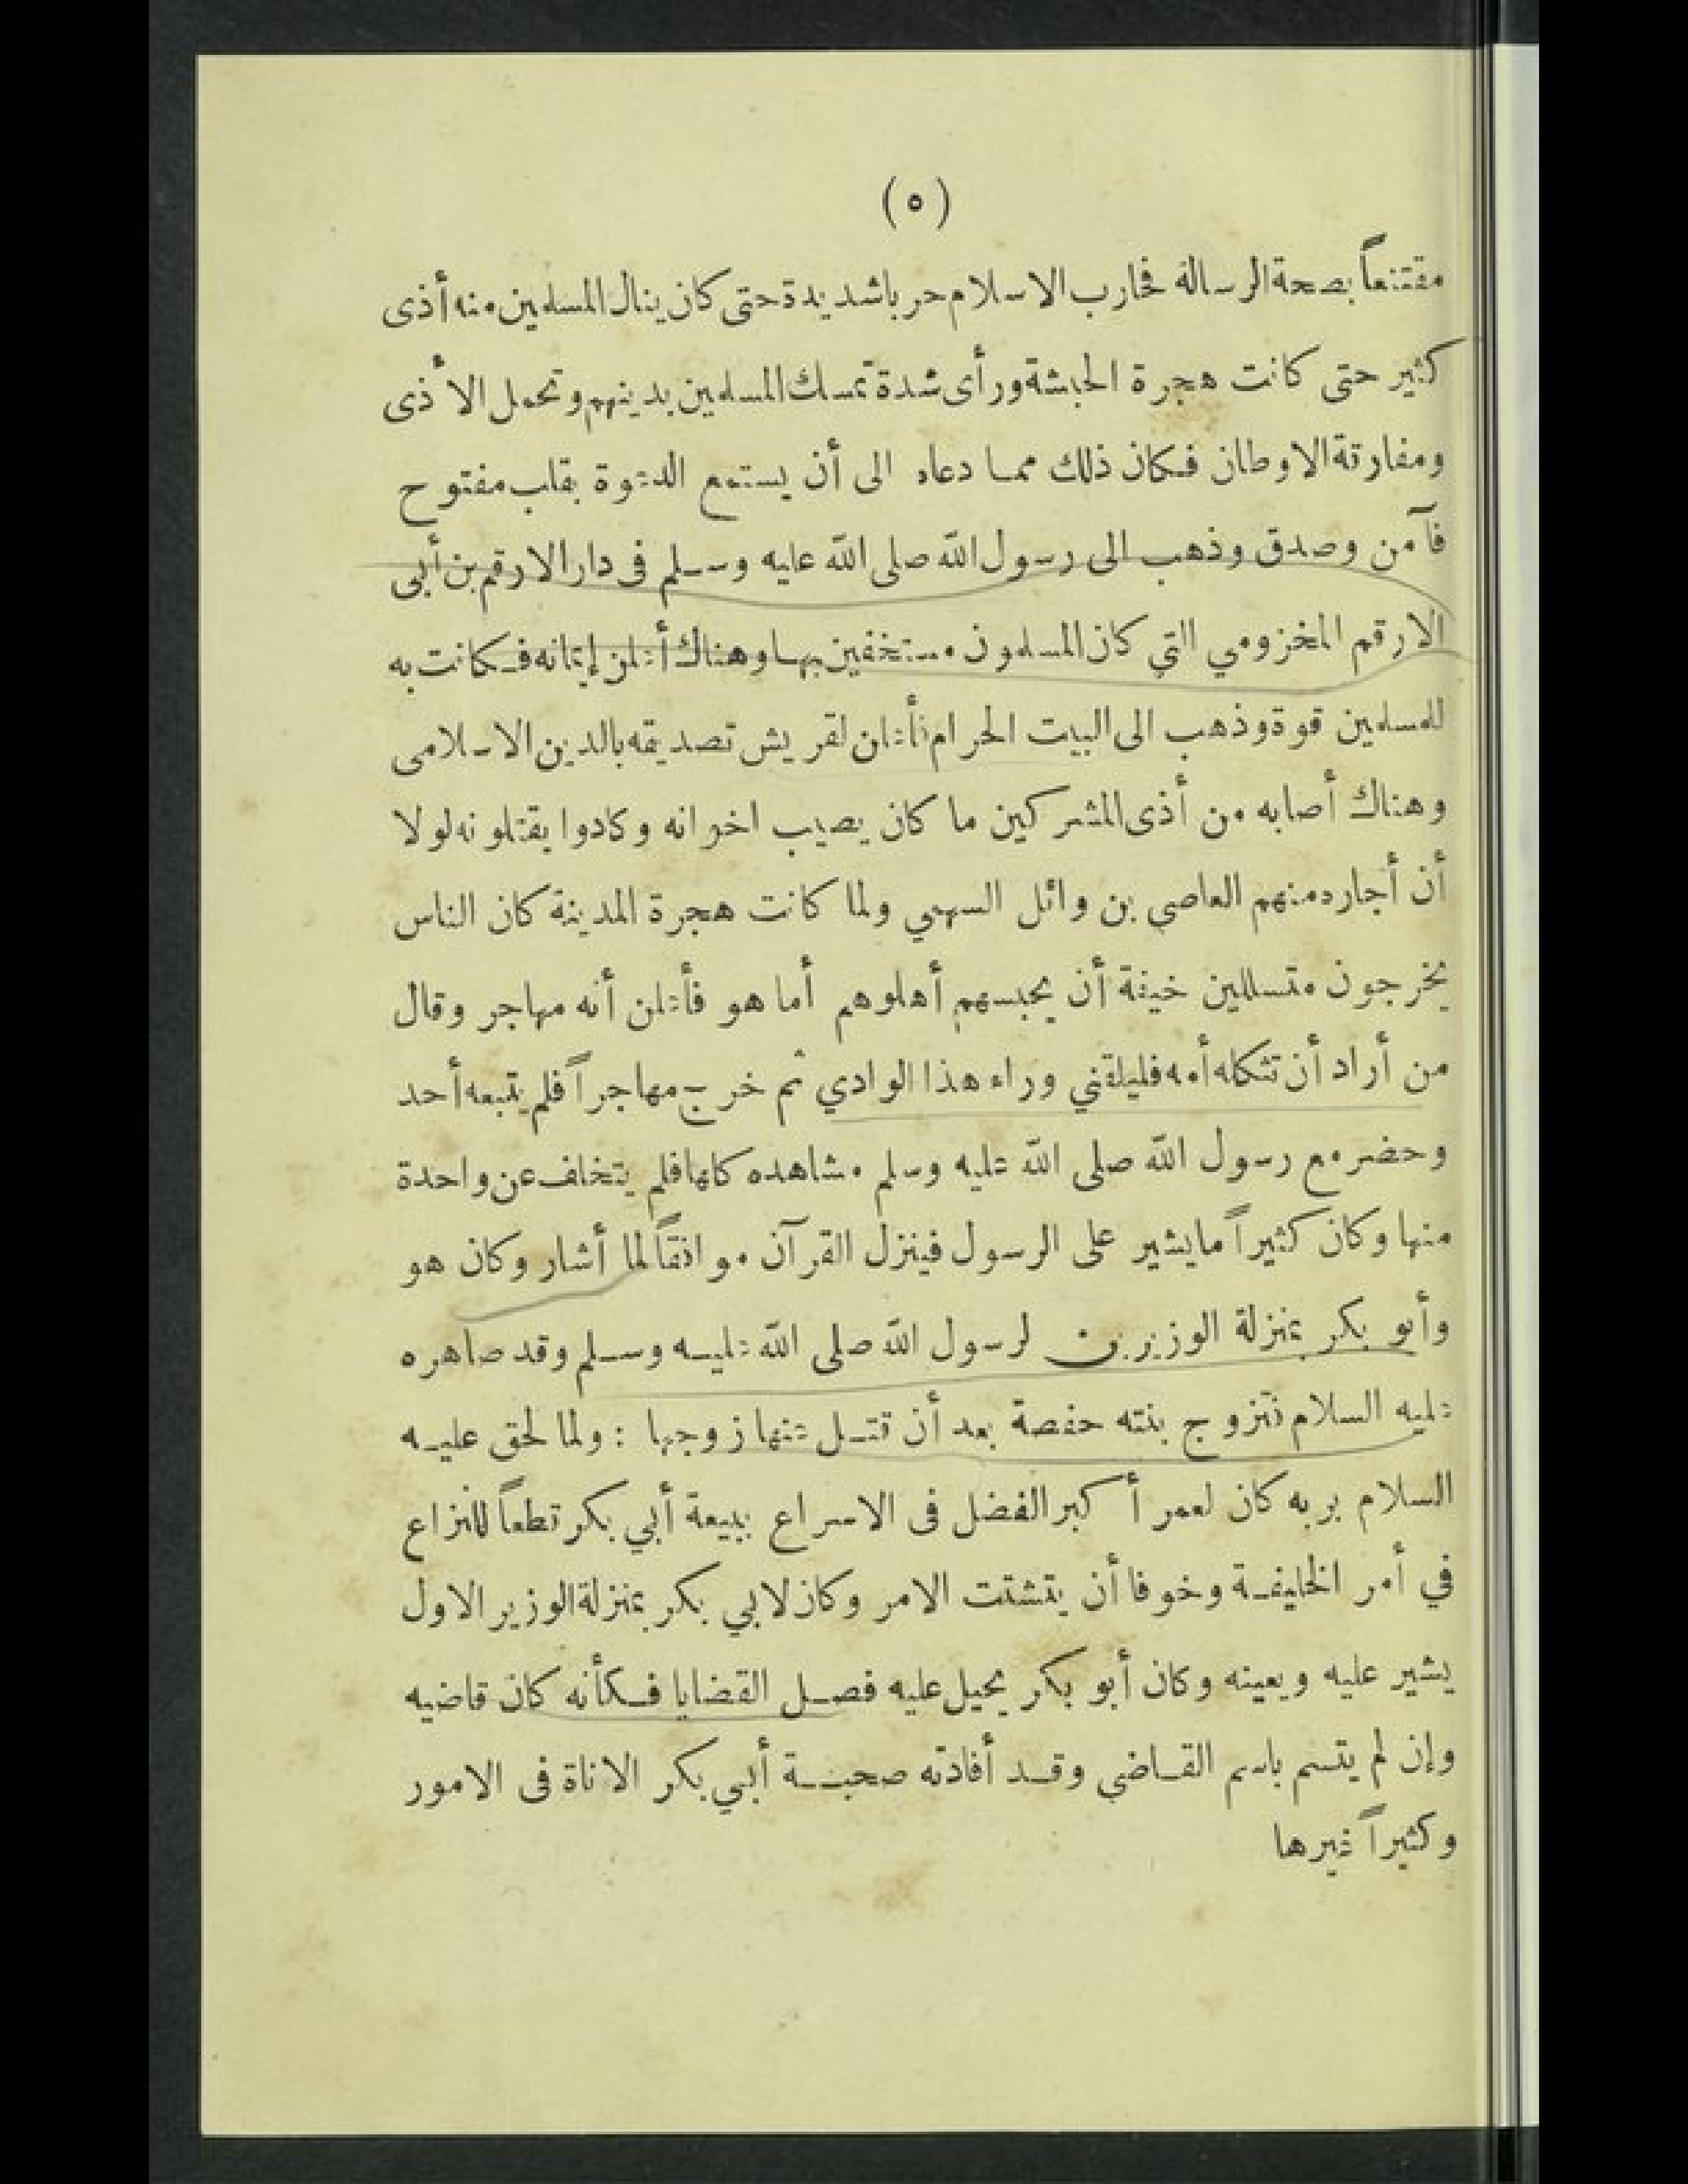 (٥)
مقتنعاً بصحة الرسالة فحارب الاسلام حربا شديدة حتى كان ينال المسلمين منه أذى
كثير حتى كانت هجرة الحبشة ورأى شدة تمسك المسلمين بدينهم وتحمل الأذى
ومفارقة الاوطان فكان ذلك مما دعاه الى أن يستمع الدعوة بقلب مفتوح
فآمن وصدق وذهب الى رسول الله صلى الله عليه وسلم فى دار الارقم بن أبى
الارقم المخزومي التي كان المسلمون مستخفين بها وهناك أعلن إيمانه فكانت به
للمسلمين قوة وذهب الى البيت الحرام فأعلن لقريش تصديقه بالدين الاسلامى
وهناك أصابه من أذى المشركين ما كان يصيب اخوانه وكادوا يقتلونه لولا
أن أجاره منهم العاصى بن وائل السهمي ولما كانت هجرة المدينة كان الناس
يخرجون متسللين خيفة أن يحبسهم أهلوهم أما هو فأعلن أنه مهاجر وقال
من أراد أن تثكله أمه فليلقني وراء هذا الوادي ثم خرج مهاجراً فلم يتبعه أحد
وحضر مع رسول الله صلى الله عليه وسلم مشاهده كلها فلم يتخلف عن واحدة
منها وكان كثيراً ما يشير على الرسول فينزل القرآن موافقاً لما أشار وكان هو
وأبو بكر بمنزلة الوزيرين لرسول الله صلى الله عليه وسلم وقد صاهره
عليه السلام فتزوج بنته حفصة بعد أن قتل عنها زوجها : ولما لحق عليه
السلام بربه كان لعمر أكبر الفضل فى الاسراع ببيعة أبي بكر قطعاً للنزاع
في أمر الخليفة وخوفا أن يتشتت الامر وكان لابي بكر بمنزلة الوزير الاول
يشير عليه ويعينه وكان أبو بكر يحيل عليه فصل القضايا فكأنه كان قاضيه
وإن لم يتسم باسم القاضي وقد أفادته صحبة أبي بكر الاناة فى الامور
وكثيراً غيرها